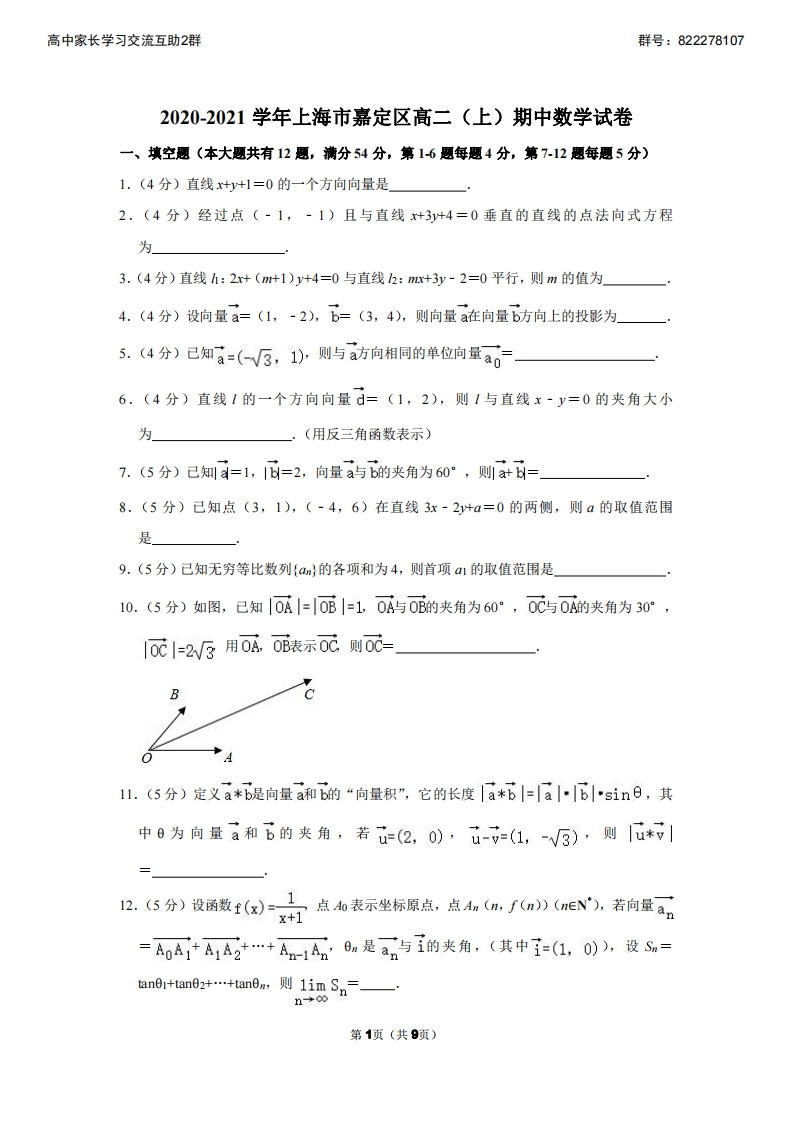 高中家长学习交流互助2群 群号：822278107
2020-2021 学年上海市嘉定区高二（上）期中数学试卷
一、填空题（本大题共有 12 题，满分 54 分，第 1-6 题每题 4 分，第 7-12 题每题 5 分）
1.（4 分）直线 x+y+1＝0 的一个方向向量是 ．
2.（4 分）经过点（﹣1，﹣1）且与直线 x+3y+4＝0 垂直的直线的点法向式方程
为 ．
3.（4 分）直线 l₁：2x+（m+1）y+4＝0 与直线 l₂：mx+3y﹣2＝0 平行，则 m 的值为 ．
4.（4 分）设向量 a⃗＝（1，﹣2），b⃗＝（3，4），则向量 a⃗在向量 b⃗方向上的投影为 ．
5.（4 分）已知 a⃗=(-√3，1)，则与 a⃗方向相同的单位向量 a₀⃗＝ ．
6.（4 分）直线 l 的一个方向向量 d⃗＝（1，2），则 l 与直线 x﹣y＝0 的夹角大小
为 ．（用反三角函数表示）
7.（5 分）已知|a⃗|＝1，|b⃗|＝2，向量 a⃗与 b⃗的夹角为 60°，则|a⃗+b⃗|＝ ．
8.（5 分）已知点（3，1），（﹣4，6）在直线 3x﹣2y+a＝0 的两侧，则 a 的取值范围
是 ．
9.（5 分）已知无穷等比数列{aₙ}的各项和为 4，则首项 a₁ 的取值范围是 ．
10.（5 分）如图，已知 |OA⃗|=|OB⃗|=1，OA⃗与OB⃗的夹角为 60°，OC⃗与OA⃗的夹角为 30°，
|OC⃗|=2√3，用OA⃗，OB⃗表示OC⃗，则OC⃗＝ ．
B C
O A
11.（5 分）定义 a⃗*b⃗是向量 a⃗和 b⃗的“向量积”，它的长度 |a⃗*b⃗|=|a⃗|•|b⃗|•sinθ，其
中 θ 为向量 a⃗ 和 b⃗ 的夹角，若 u⃗=(2，0)，u⃗-v⃗=(1，-√3)，则 |u⃗*v⃗|
＝ ．
12.（5 分）设函数 f(x)=1/(x+1)，点 A₀ 表示坐标原点，点 Aₙ（n，f（n））（n∈N*），若向量 aₙ⃗
＝A₀A₁⃗+A₁A₂⃗+…+Aₙ₋₁Aₙ⃗，θₙ 是 aₙ⃗与 i⃗的夹角，（其中 i⃗=(1，0)），设 Sₙ＝
tanθ₁+tanθ₂+…+tanθₙ，则 lim n→∞ Sₙ＝ ．
第 1页（共 9页）